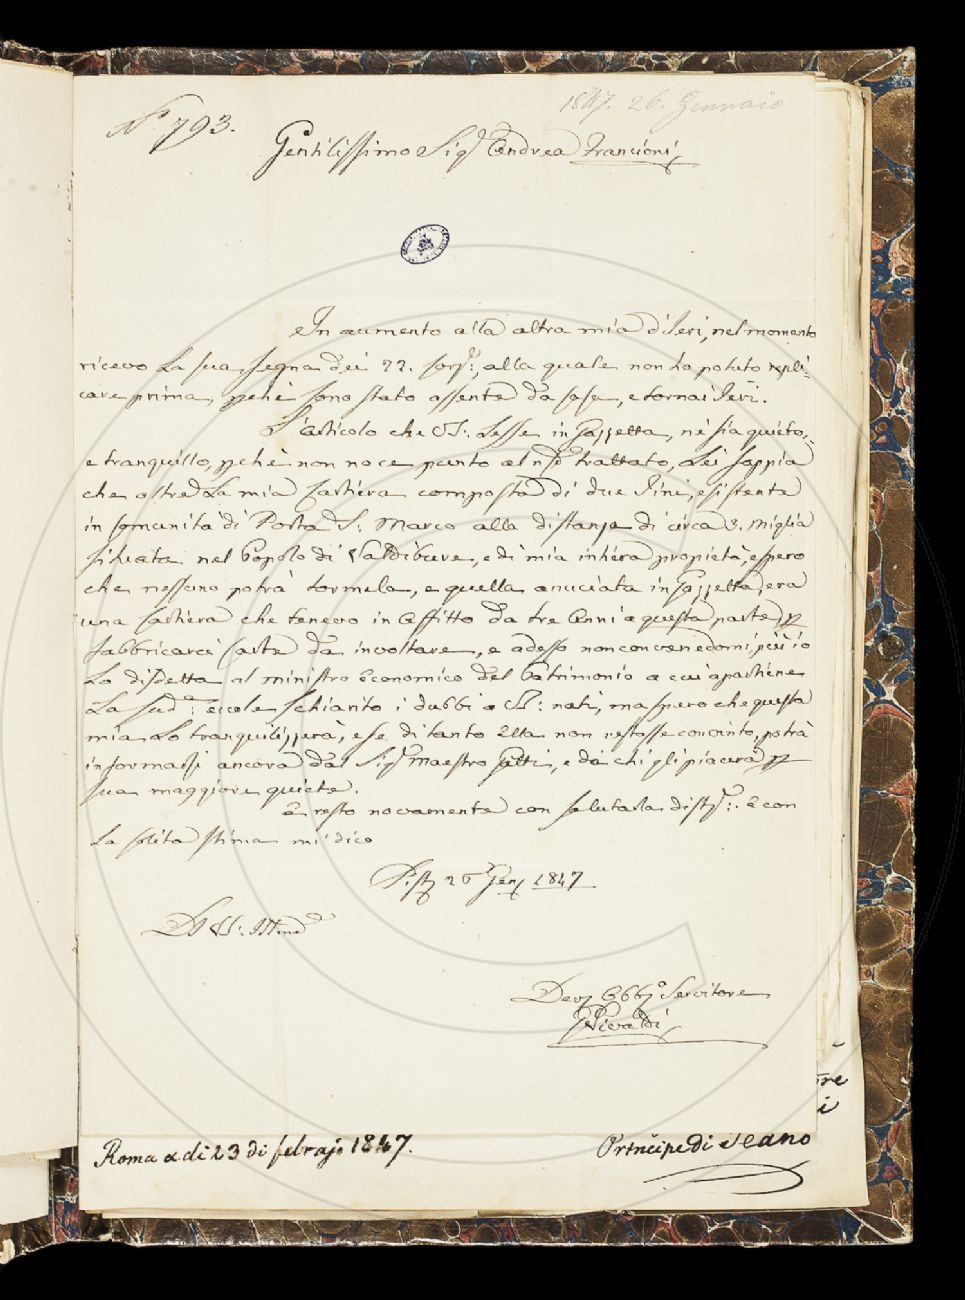 1847. 26. Gennaio
N.° 793.
Gentilissimo Sig.r Andrea Francioni
In aumento alla altra mia di Ieri, nel momento
ricevo la sua segna dei 22. Cor.e: alla quale non ho potuto repli-
care prima, pche sono stato assente da Casa, e tornai Ieri.
L'articolo che VS:. Lesse in Gazzetta, ne sia quieto,=
e tranquillo, pche non noce punto al nro trattato, Lei sappia
che oltre La mia Cartiera composta di due Tini, esistente
in Comunità di Porta S: Marco alla distanza di circa 3. miglia
situata nel Popolo di Valdibure, e di mia intiera propietà, espero
che nessuno potrà tormela, e quella anuciata in Gazzetta, era
una Cartiera che tenevo in Affitto da tre Anni a questa parte p
fabbricarci Carta da involtare, e adesso non convenendomi, più io
Lo disdetta al ministro Economico del Patrimonio a cui apartiene
La Sud.a: eccole Schianto i dubbi a VS: nati, ma spero che questa
mia Lo tranquilizzerà, e se di tanto Ella non restasse convinto, potrà
informarsi ancora dal Sig.r Maestro Gatti, e da chi gli piacerà p
sua maggiore quiete.
E resto novamente con salutarla dist.e: e con
La solita stima mi dico
Pist. 26 Gen. 1847
Di VS: Illma
Dev. Obbl.o Servitore
Pieraldi
re
i
Roma a di 23 di febrajo 1847.
Principe di Scano